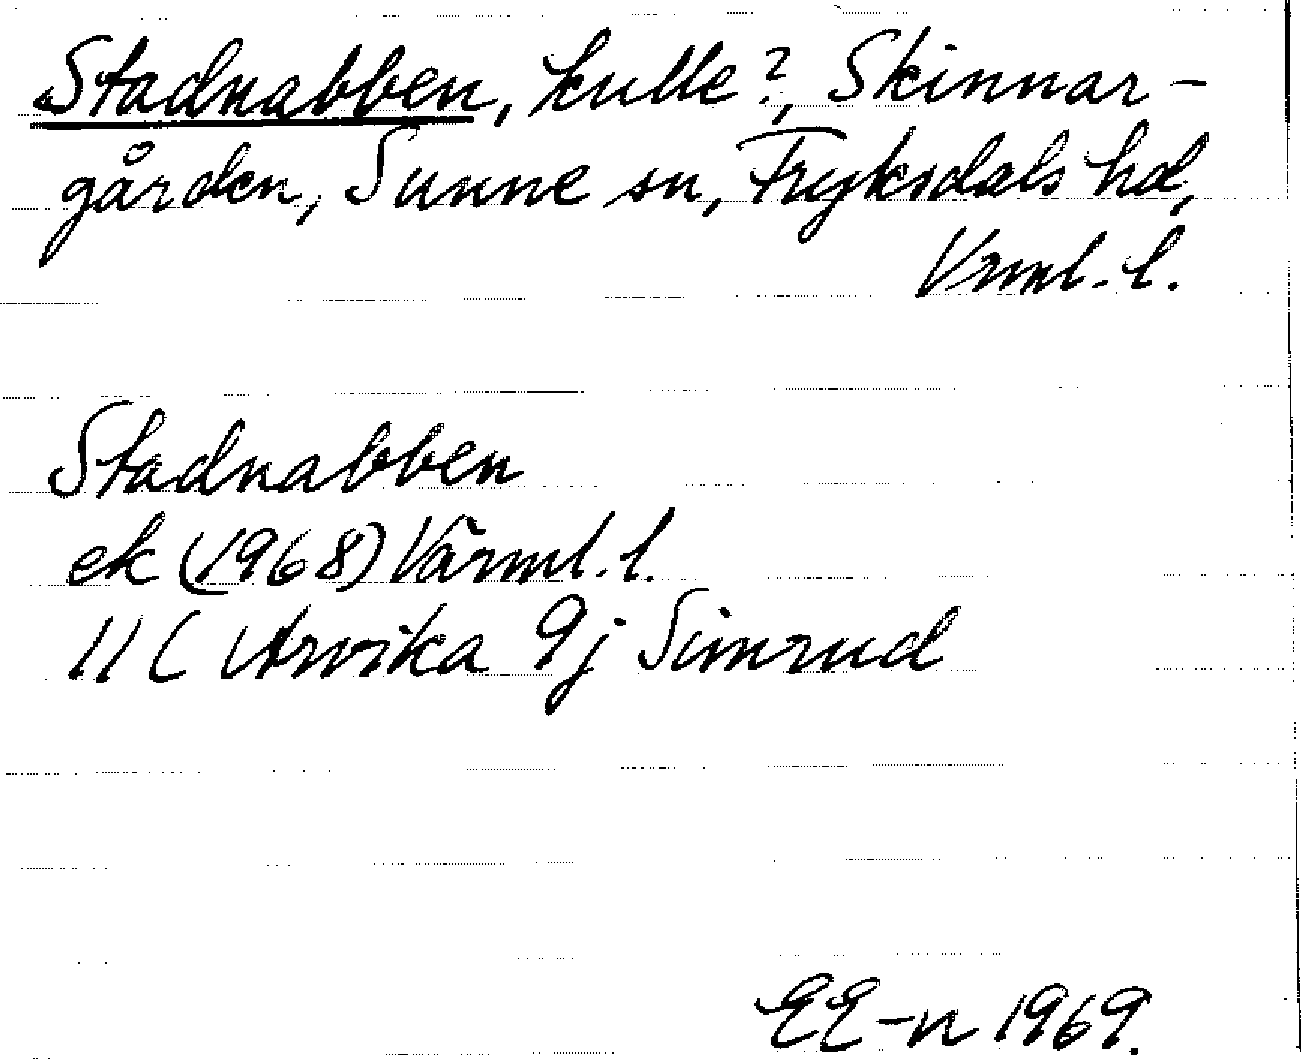 Stadnabben, kulle?, Skinnar-
gården, Sunne sn, Fryksdals hd,
Vrml. l.
Stadnabben
ek (1968) Värml. l.
11 C Arvika 9j Simrud
EE-n 1969.